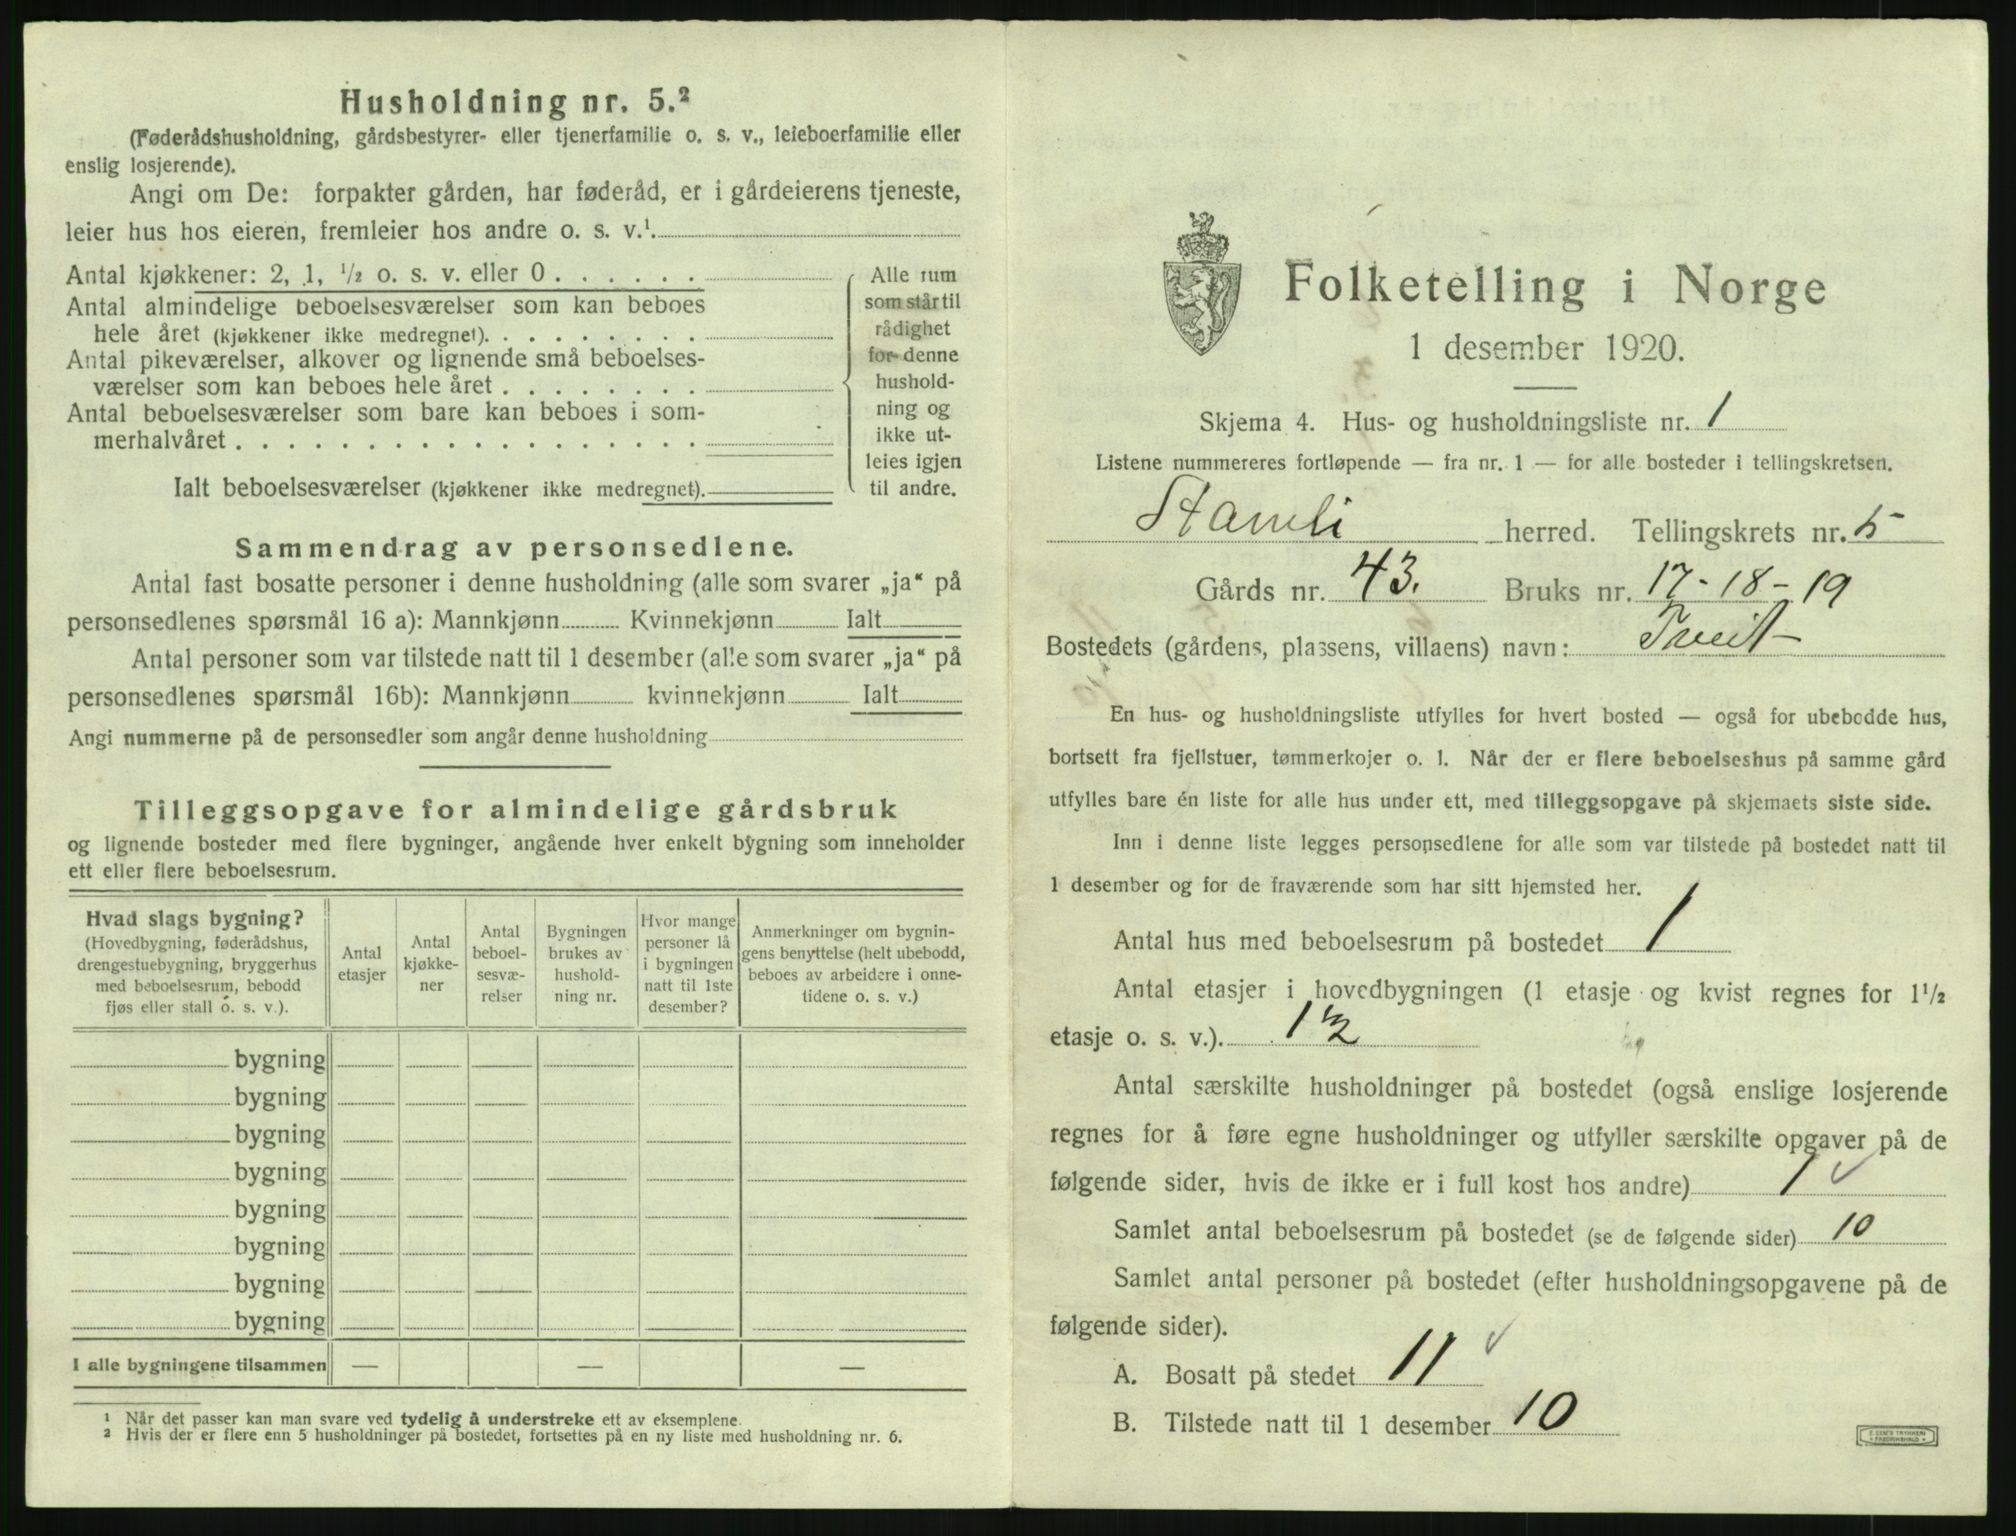 Husholdning nr. 5.²
(Føderådshusholdning, gårdsbestyrer- eller tjenerfamilie o. s. v., leieboerfamilie eller
enslig losjerende).
Angi om De: forpakter gården, har føderåd, er i gårdeierens tjeneste,
leier hus hos eieren, fremleier hos andre o. s. v.¹
Antal kjøkkener: 2, 1, ½ o. s. v. eller 0 . . . . . .
Antal almindelige beboelsesværelser som kan beboes
hele året (kjøkkener ikke medregnet). . . . . . . . .
Antal pikeværelser, alkover og lignende små beboelses-
værelser som kan beboes hele året . . . . . . . .
Antal beboelsesværelser som bare kan beboes i som-
merhalvåret . . . . . . . . . . . . . . . . . .
Ialt beboelsesværelser (kjøkkener ikke medregnet).
Alle rum
som står til
rådighet
for denne
hushold-
ning og
ikke ut-
leies igjen
til andre.
Sammendrag av personsedlene.
Antal fast bosatte personer i denne husholdning (alle som svarer „ja“ på
personsedlenes spørsmål 16 a): Mannkjønn Kvinnekjønn Ialt
Antal personer som var tilstede natt til 1 desember (alle som svarer „ja“ på
personsedlenes spørsmål 16b): Mannkjønn kvinnekjønn Ialt
Angi nummerne på de personsedler som angår denne husholdning
Tilleggsopgave for almindelige gårdsbruk
og lignende bosteder med flere bygninger, angående hver enkelt bygning som inneholder
ett eller flere beboelsesrum.
Hvad slags bygning?
(Hovedbygning, føderådshus,
drengestuebygning, bryggerhus
med beboelsesrum, bebodd
fjøs eller stall o. s. v.).
Antal
etasjer
Antal
kjøkke-
ner
Antal
beboel-
sesvæ-
relser
Bygningen
brukes av
hushold-
ning nr.
Hvor mange
personer lå
i bygningen
natt til 1ste
desember?
Anmerkninger om bygnin-
gens benyttelse (helt ubebodd,
beboes av arbeidere i onne-
tidene o. s. v.)
bygning
bygning
bygning
bygning
bygning
bygning
bygning
bygning
I alle bygningene tilsammen — — —
¹ Når det passer kan man svare ved tydelig å understreke ett av eksemplene.
² Hvis der er flere enn 5 husholdninger på bostedet, fortsettes på en ny liste med husholdning nr. 6.
Folketelling i Norge
1 desember 1920.
Skjema 4. Hus- og husholdningsliste nr. 1
Listene nummereres fortløpende — fra nr. 1 — for alle bosteder i tellingskretsen.
herred. Tellingskrets nr. 5
Gårds nr. 43. Bruks nr. 17-18-19
Bostedets (gårdens, plassens, villaens) navn: Tveit
En hus- og husholdningsliste utfylles for hvert bosted — også for ubebodde hus,
bortsett fra fjellstuer, tømmerkojer o. l. Når der er flere beboelseshus på samme gård
utfylles bare én liste for alle hus under ett, med tilleggsopgave på skjemaets siste side.
Inn i denne liste legges personsedlene for alle som var tilstede på bostedet natt til
1 desember og for de fraværende som har sitt hjemsted her.
Antal hus med beboelsesrum på bostedet 1
Antal etasjer i hovedbygningen (1 etasje og kvist regnes for 1½
etasje o. s. v.). 1½
Antal særskilte husholdninger på bostedet (også enslige losjerende
regnes for å føre egne husholdninger og utfyller særskilte opgaver på de
følgende sider, hvis de ikke er i full kost hos andre) 1 ✓
Samlet antal beboelsesrum på bostedet (se de følgende sider) 10
Samlet antal personer på bostedet (efter husholdningsopgavene på de
følgende sider).
A. Bosatt på stedet 11 ✓
B. Tilstede natt til 1 desember 10